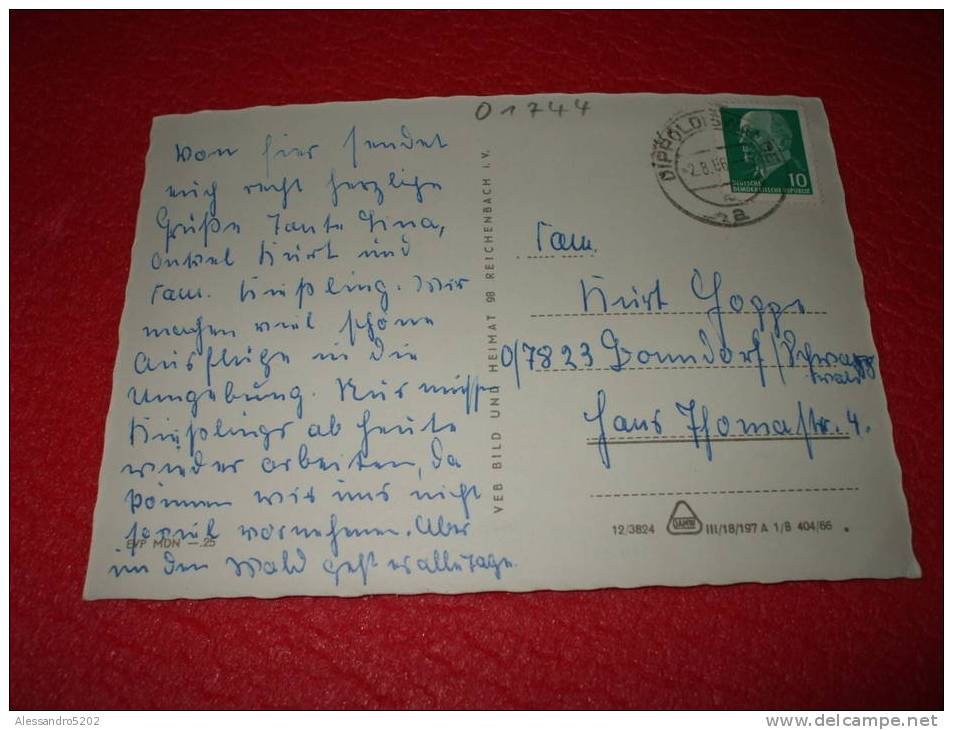 01744
Von hier sendet
euch recht herzliche
Grüße Tante Gina,
Onkel Kurt und
Fam. Kießling. Wir
machen viel schöne
Ausflüge in die
Umgebung. Nur müssen
Kießlings ab heute
wieder arbeiten, da
können wir uns nicht
soviel vornehmen. Aber
in den Wald geht es alle Tage.
EVP MDN —.25
VEB BILD UND HEIMAT 98 REICHENBACH i. V.
DIPPOLDIS
2.8.66
a
10
DEUTSCHE
DEMOKRATISCHE REPUBLIK
Fam.
Kurt Hoppe
7823 Bonndorf / Schwarz
wald
Hans Thomastr. 4.
12/3824 DAMW III/18/197 A 1/B 404/66
Alessandro5202
www.delcampe.net